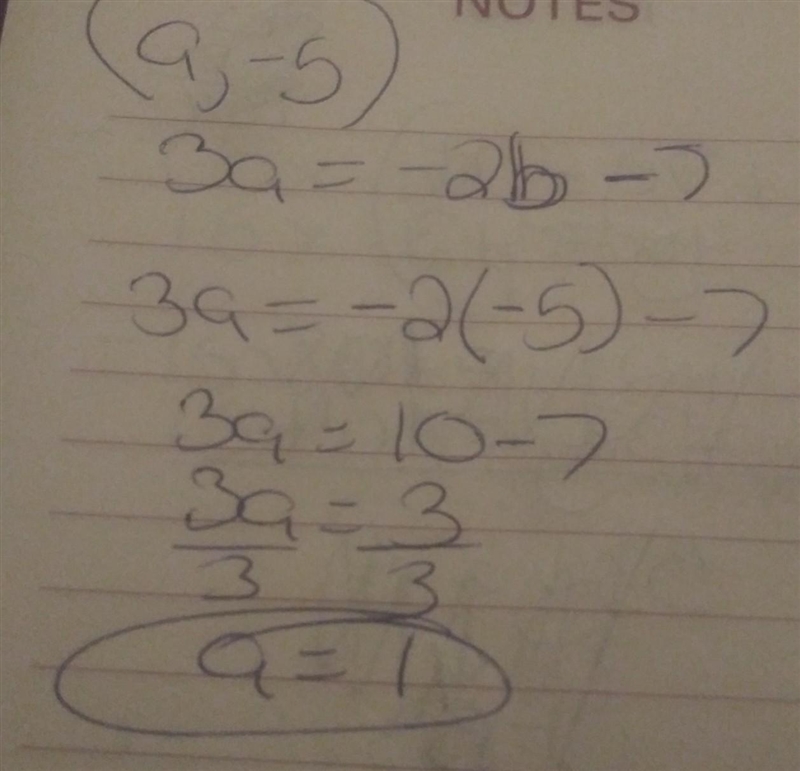 NOTES
(a, -5)
3a = -2b - 7
3a = -2(-5) - 7
3a = 10 - 7
3a = 3
3 3
a = 1